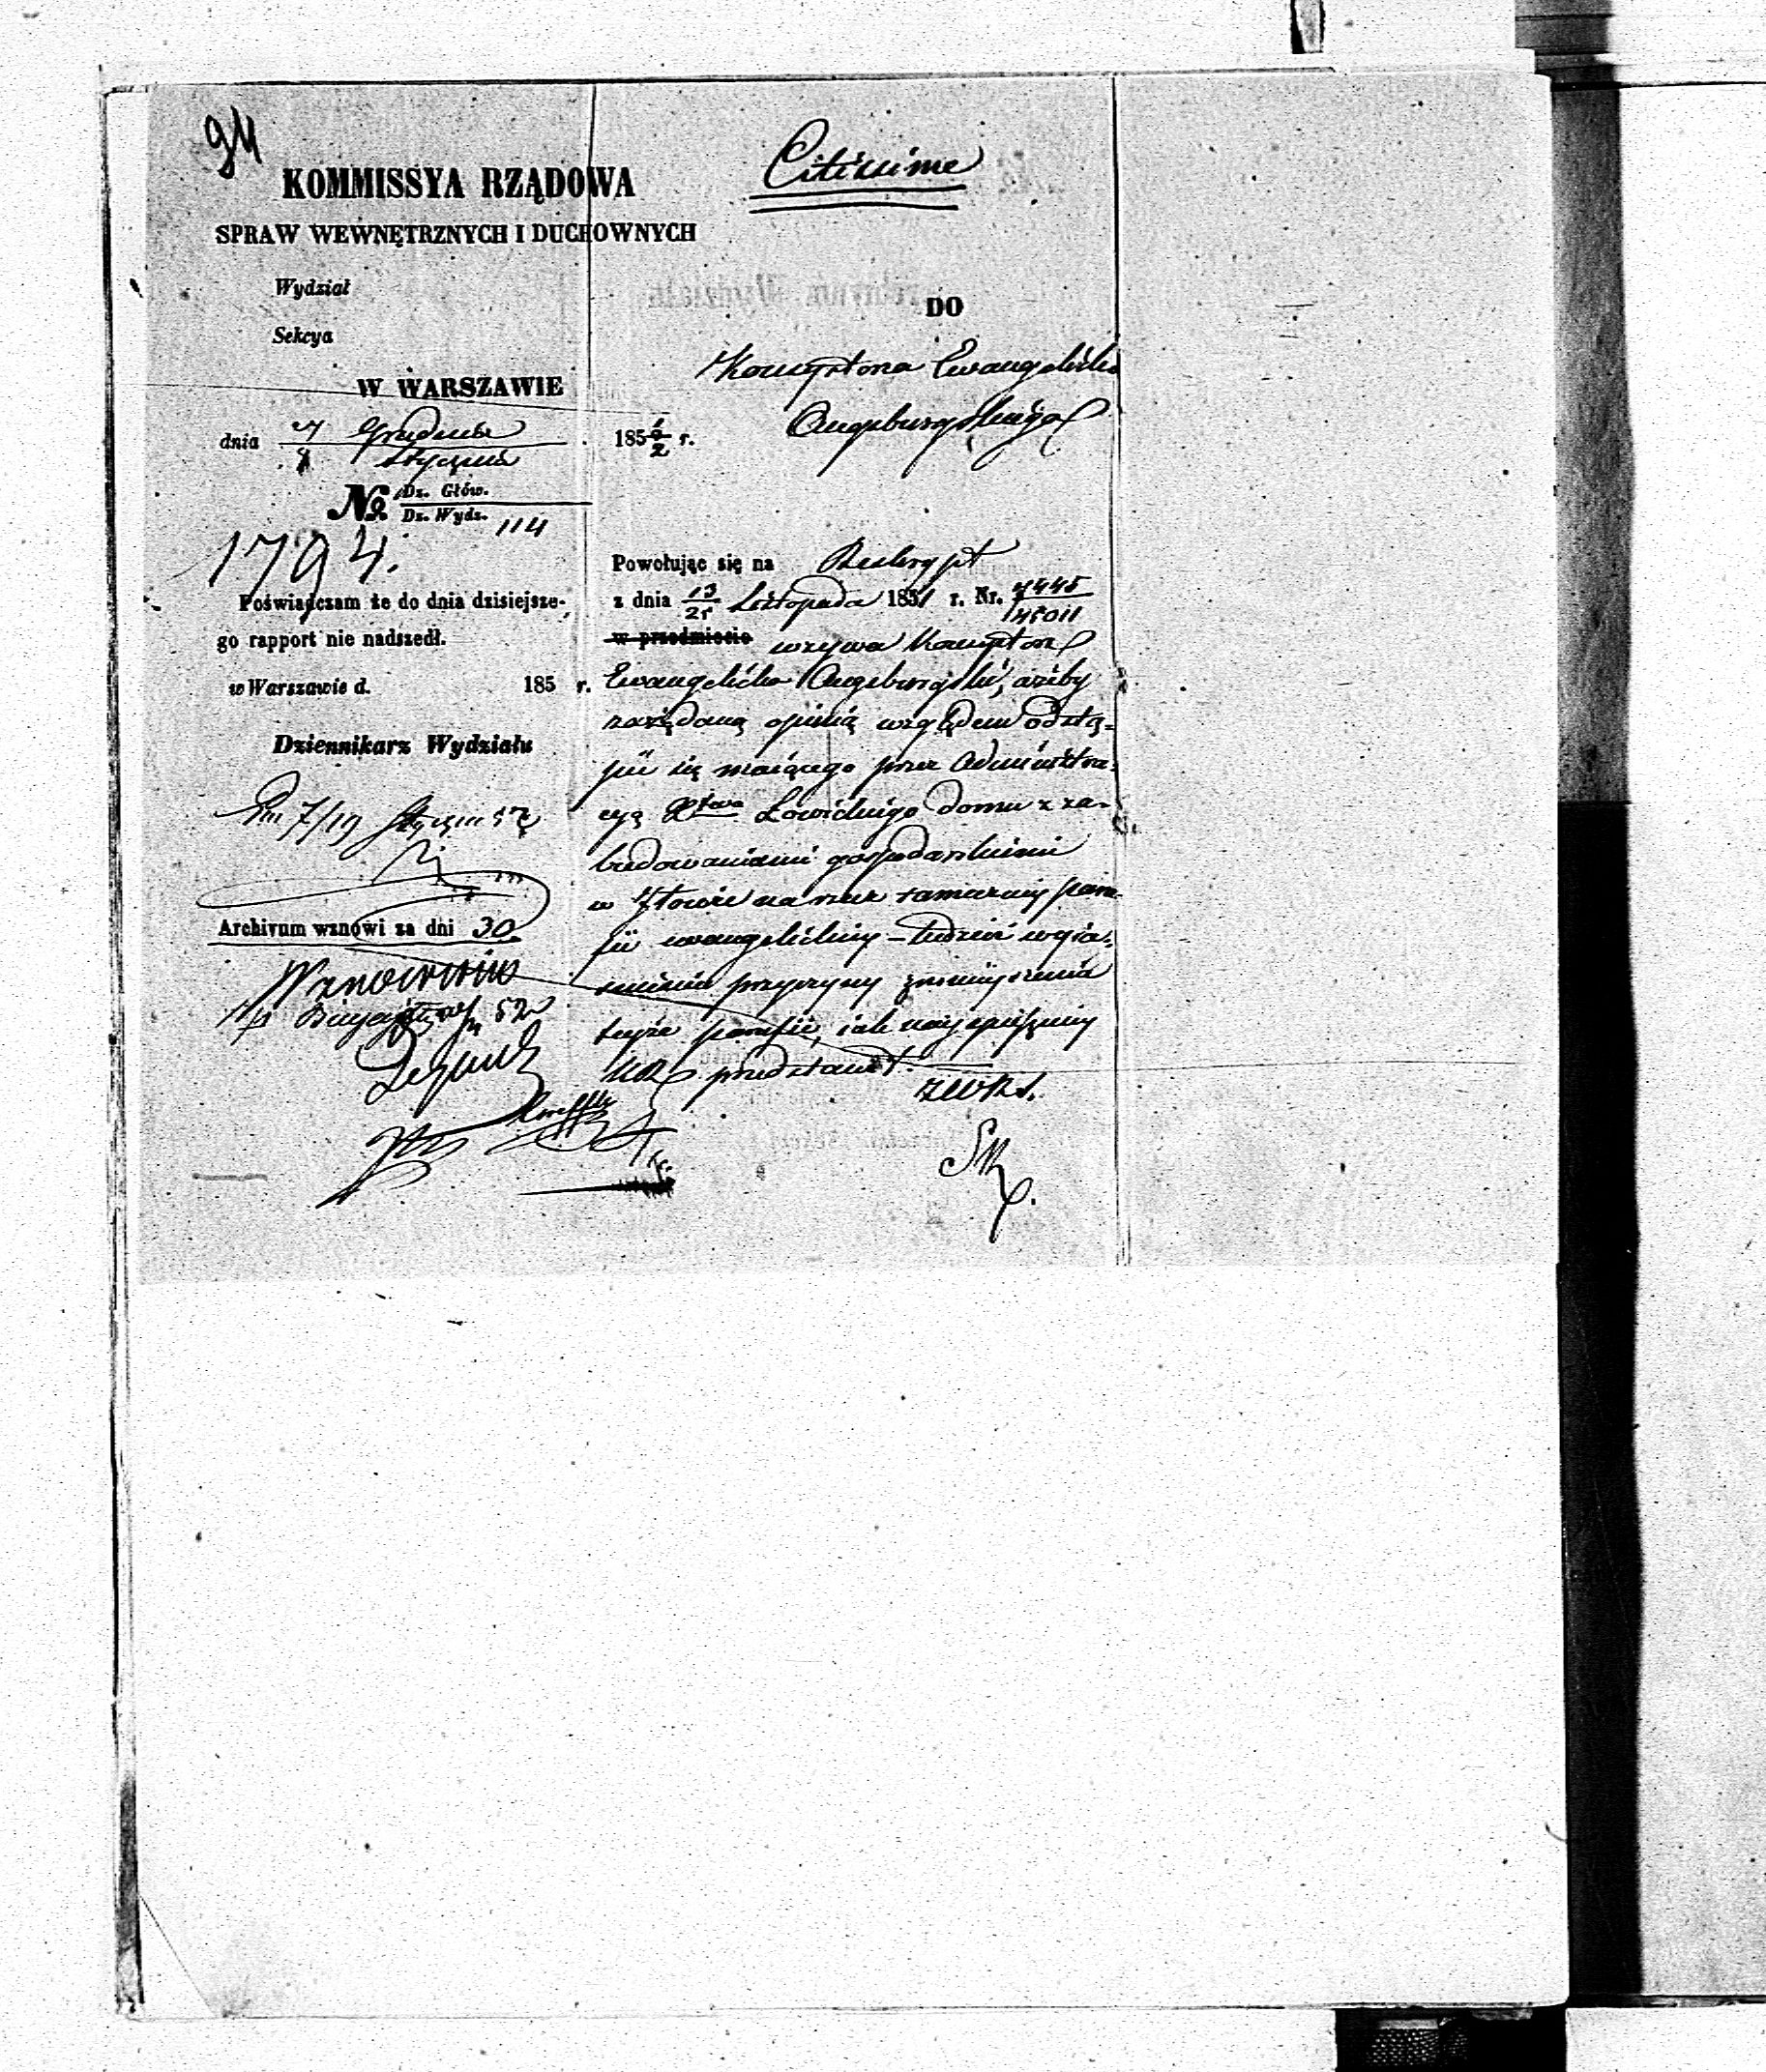 94
KOMMISSYA RZĄDOWA
SPRAW WEWNĘTRZNYCH I DUCHOWNYCH
Wydział
Sekcya
W WARSZAWIE
dnia Grudnia / Stycznia 185 1/2 r.
No. Dz. Głów. / Dz. Wydz. 114
1794.
Poświadczam że do dnia dzisiejsze-
go rapport nie nadszedł.
w Warszawie d. 185 r.
Dziennikarz Wydziału
7/19 Stycznia 52
Archivum wznowi za dni 30
Wznowiono
52
Citissime
DO
Konsystorza Ewangelicko
Augsburgskiego
Powołując się na Reskrypt
z dnia 13/25 Listopada 1851 r. Nr. 7445/14011
w przedmiocie wzywa Konsystorz
Ewangelicko Augsburgski, ażeby
zażądaną opinią względem odstą-
pić się mającego przez Administra-
cyą Xtwa Łowickiego domu z za-
budowaniami gospodarskiemi
w Iłowie na rzecz tamecznej para-
fii ewangelickiej – tudzież wyja-
śnienia przyczyny zmniejszenia
tejże parafii, jak najspieszniej
KR przedstawił.